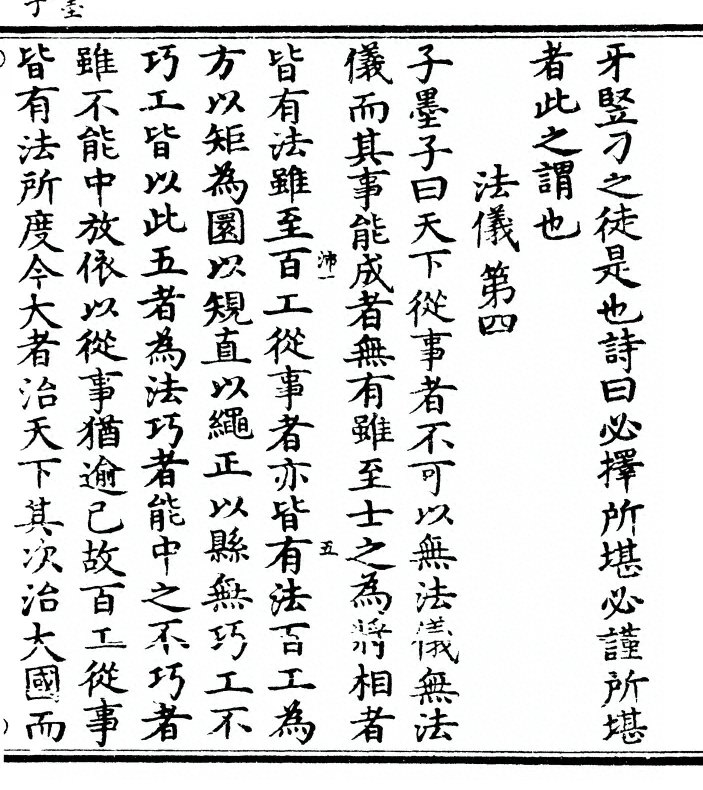 牙竪刁之徒是也詩曰必擇所堪必謹所堪
者此之謂也
法儀第四
子墨子曰天下從事者不可以無法儀無法
儀而其事能成者無有雖至士之為將相者
皆有法雖至百工從事者亦皆有法百工為
方以矩為圜以規直以繩正以縣無巧工不
巧工皆以此五者為法巧者能中之不巧者
雖不能中放依以從事猶逾己故百工從事
皆有法所度今大者治天下其次治大國而
五